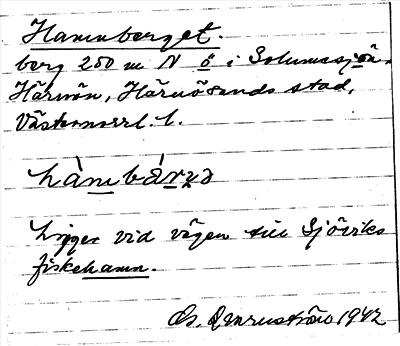 Hamnberget.
berg 250 m N ö i Solumssjön.
Härnön, Härnösands stad,
Västernorrl. l.
hàmbárʒə
Ligger vid vägen till Sjöviks
fiskehamn.
1942